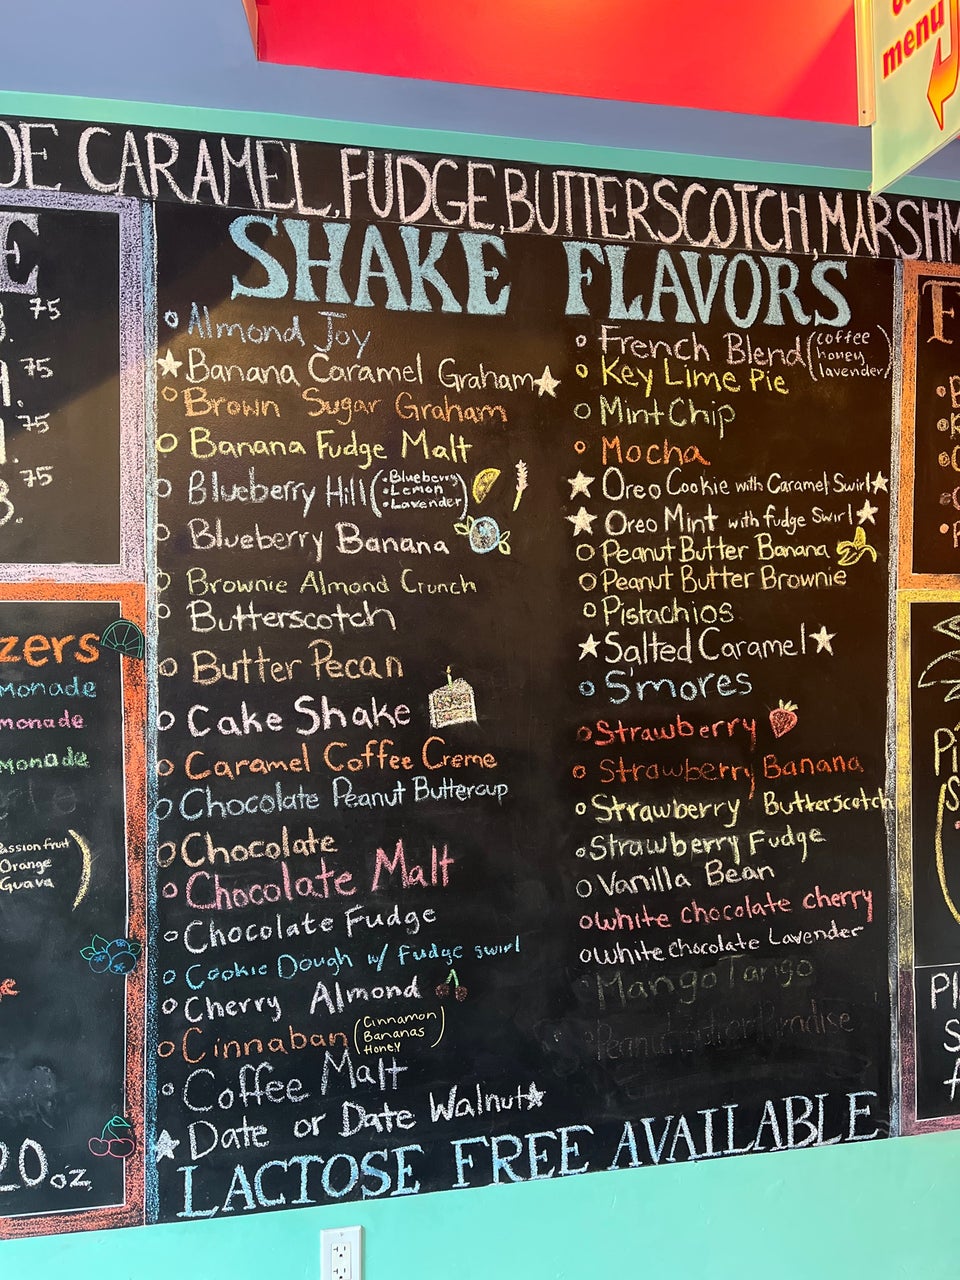 menu
DE CARAMEL, FUDGE, BUTTERSCOTCH, MARSHM
SHAKE FLAVORS
Almond Joy
Banana Caramel Graham
Brown Sugar Graham
Banana Fudge Malt
Blueberry Hill (•Blueberry
•Lemon
•Lavender)
Blueberry Banana
Brownie Almond Crunch
Butterscotch
Butter Pecan
Cake Shake
Caramel Coffee Creme
Chocolate Peanut Buttercup
Chocolate
Chocolate Malt
Chocolate Fudge
Cookie Dough w/ Fudge swirl
Cherry Almond
Cinnaban (Cinnamon
Bananas
Honey)
Coffee Malt
Date or Date Walnut
French Blend (coffee
honey
lavender)
Key Lime Pie
Mint Chip
Mocha
Oreo Cookie with Caramel Swirl
Oreo Mint with fudge Swirl
Peanut Butter Banana
Peanut Butter Brownie
Pistachios
Salted Caramel
S'mores
Strawberry
Strawberry Banana
Strawberry Butterscotch
Strawberry Fudge
Vanilla Bean
white chocolate cherry
white chocolate Lavender
Mango Tango
LACTOSE FREE AVAILABLE
E
75
75
75
75
zers
monade
monade
monade
assion fruit
Orange
Guava
20 oz.